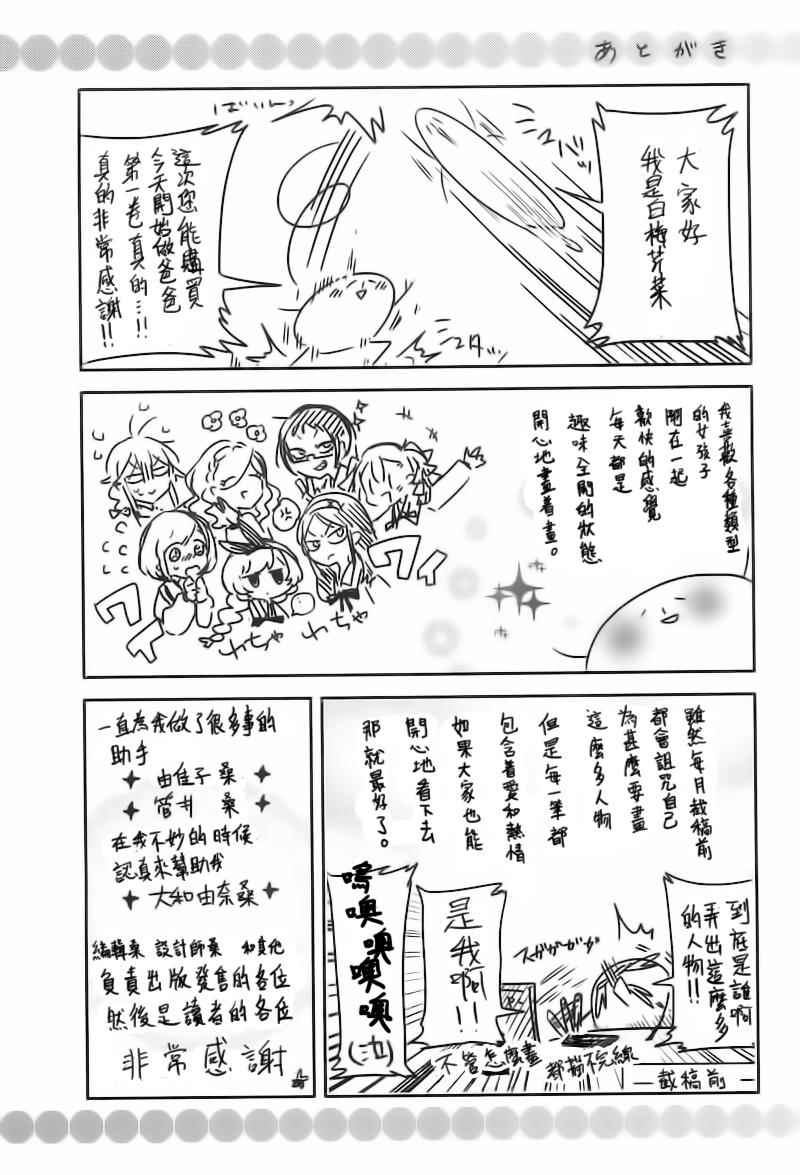 あとがき
大家好
我是白梅芹菜
ばいんっ
這次您能購買
今天開始做爸爸
第一卷真的…!!
真的非常感謝!!
我喜歡各種類型
的女孩子
鬧在一起
歡快的感覺
每天都是
趣味全開的狀態
開心地畫着畫。
ワイ
ワイ
わちゃ
わちゃ
雖然每月截稿前
都會詛咒自己
為甚麼要畫
這麼多人物
但是每一筆都
包含着愛和熱情
如果大家也能
開心地看下去
那就最好了。
到底是誰啊
弄出這麼多
的人物!!
スガガガガ
是我啊!!
嗚噢噢噢噢(泣)
不管怎麼畫
都描不完線
—截稿前—
一直為我做了很多事的
助手
由佳子 桑
管井 桑
在我不妙的時候
認真來幫助我
大和由奈桑
編輯桑 設計師桑 和其他
負責出版發售的各位
然後是讀者的各位
非常感謝